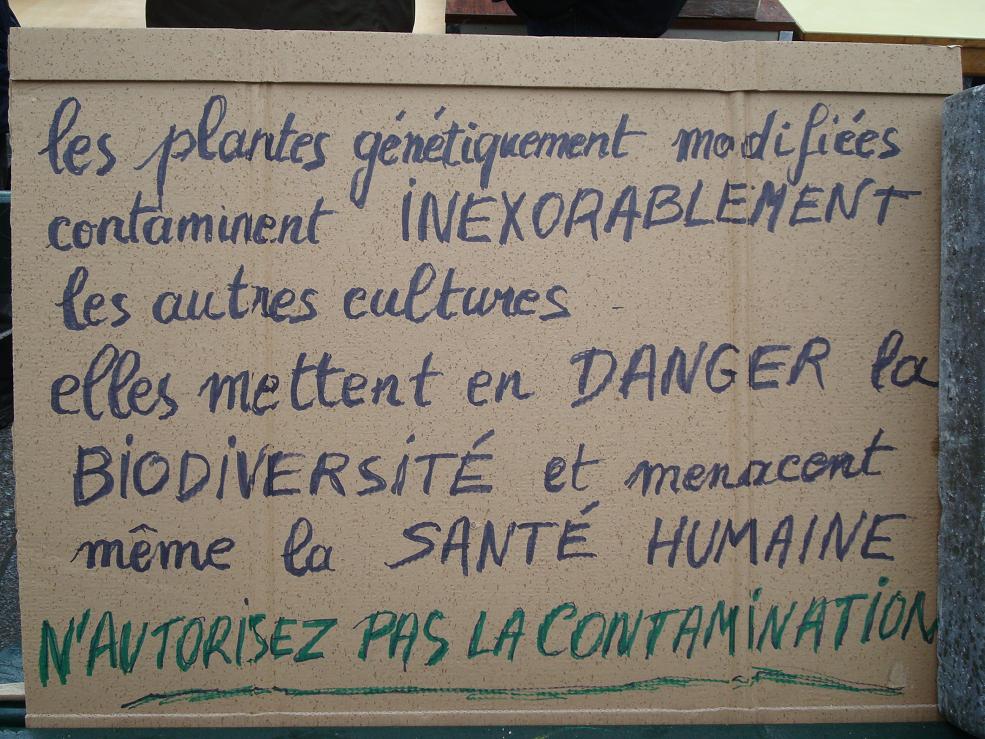 les plantes génétiquement modifiées
contaminent INEXORABLEMENT
les autres cultures
elles mettent en DANGER la
BIODIVERSITÉ et menacent
même la SANTÉ HUMAINE
N'AUTORISEZ PAS LA CONTAMINATION